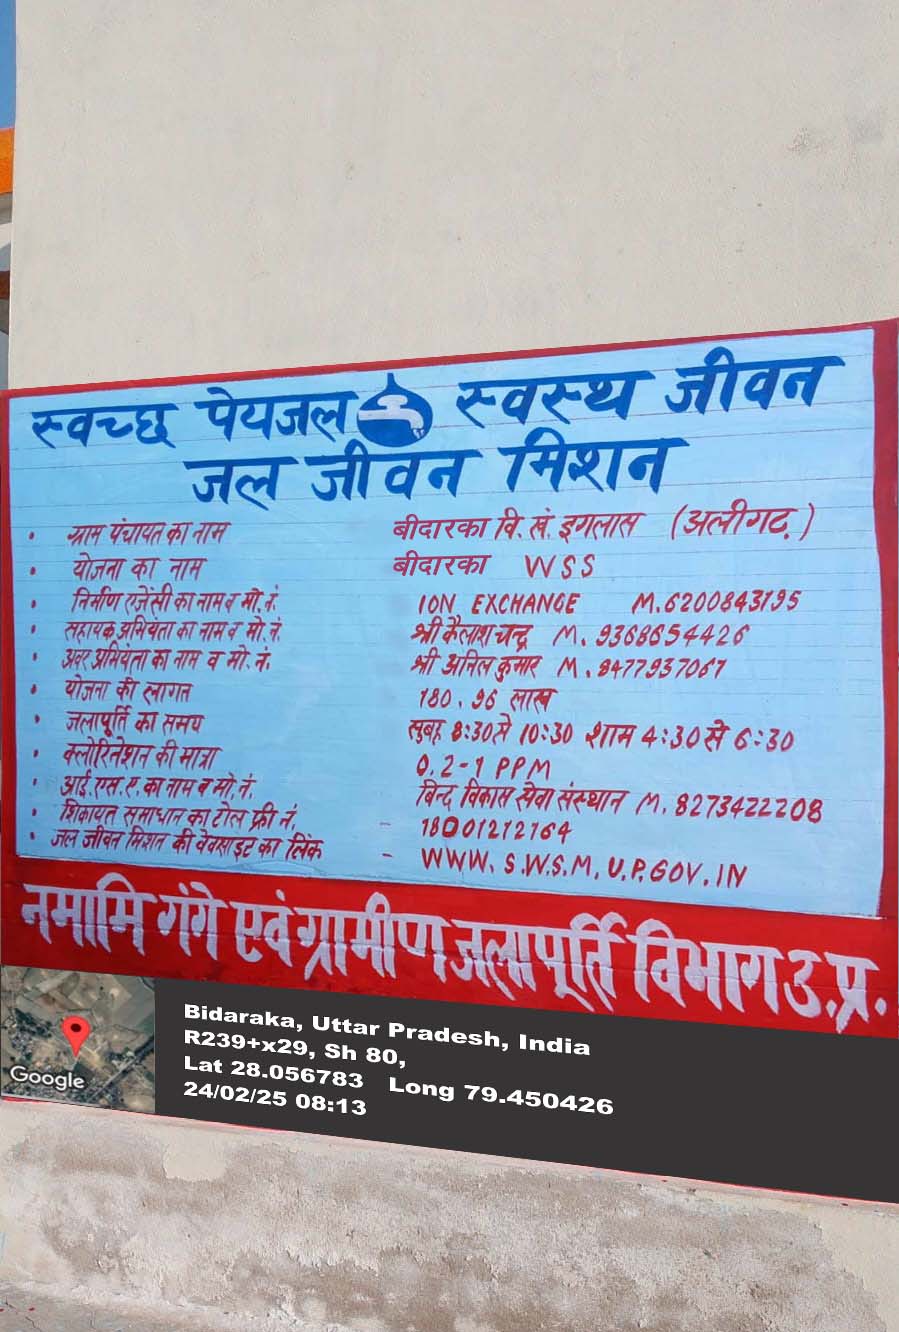 स्वच्छ पेयजल स्वस्थ जीवन
जल जीवन मिशन
• ग्राम पंचायत का नाम बीदारका वि. खं. इगलास (अलीगढ़)
• योजना का नाम बीदारका WSS
• निर्माण एजेंसी का नाम व मो. नं. ION EXCHANGE M. 6200843195
• सहायक अभियंता का नाम व मो. नं. श्री कैलाश चन्द्र M. 9368654426
• अवर अभियंता का नाम व मो. नं. श्री अनिल कुमार M. 8477937067
• योजना की लागत 180.96 लाख
• जलापूर्ति का समय सुबह 8:30 से 10:30 शाम 4:30 से 6:30
• क्लोरिनेशन की मात्रा 0.2-1 PPM
• आई.एस.ए. का नाम व मो. नं. बिन्द विकास सेवा संस्थान M. 8273422208
• शिकायत समाधान का टोल फ्री नं. - 18001212164
• जल जीवन मिशन की वेवसाइट का लिंक - WWW.S.W.S.M.U.P.GOV.IN
नमामि गंगे एवं ग्रामीण जलापूर्ति विभाग उ.प्र.
Google
Bidaraka, Uttar Pradesh, India
R239+x29, Sh 80,
Lat 28.056783 Long 79.450426
24/02/25 08:13